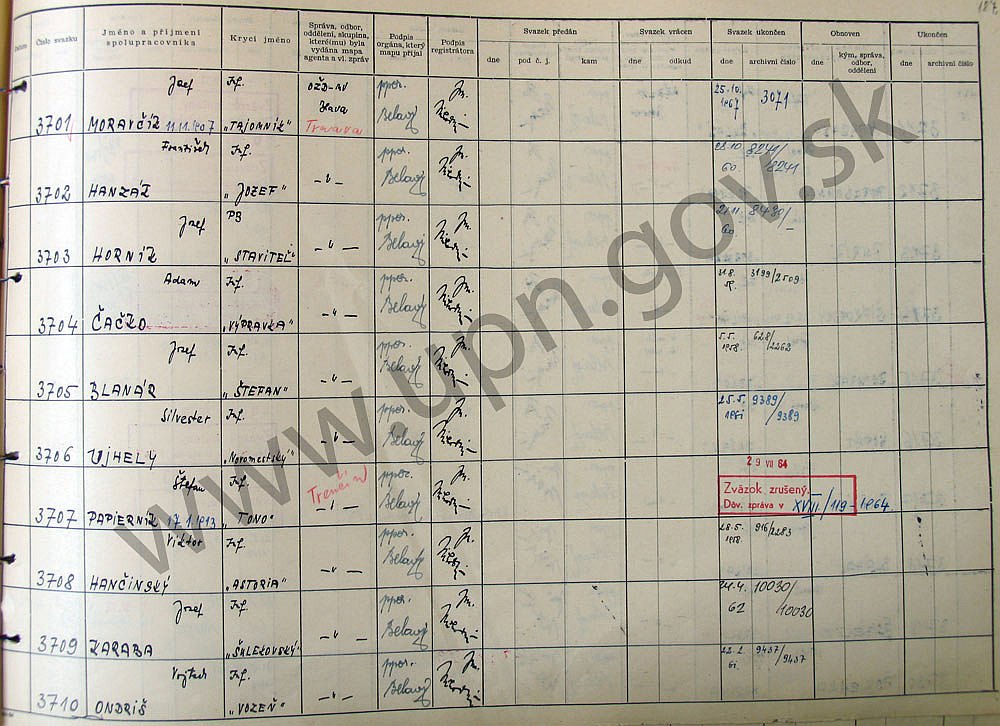 187
Datum
Číslo svazku
Jméno a příjmení spolupracovníka
Krycí jméno
Správa, odbor, oddělení, skupina, které(mu) byla vydána mapa agenta a vl. zpráv
Podpis orgána, který mapu přijal
Podpis registrátora
Svazek předán
dne
pod č. j.
kam
Svazek vrácen
dne
odkud
Svazek ukončen
dne
archivní číslo
Obnoven
dne
kým, správa, odbor, oddělení
Ukončen
dne
archivní číslo
Jozef Inf. ppor.
3701 MORAVČÍK 11.11.1907 „TAJOMNÍK" Trnava Belavý 25.10. 1967 3071
František Inf. ppor.
3702 HANZÁK „JOZEF" –"– Belavý 28.10 60. 8241/8241
Jozef PB ppor.
3703 HORNÍK „STAVITEĽ" –"– Belavý 21.11. 60. 8480/–
Adam Inf. ppor.
3704 ČAČKO „VÝPRAVKA" –"– Belavý 3199/2509
Jozef Inf. ppor.
3705 BLANÁR „ŠTEFAN" –"– Belavý 5.5. 1958. 628/2262
Silvester Inf. ppor.
3706 UJHELY „Novomestský" –"– Belavý 25.5. 1961 9389/9389
Štefan Inf. Trenčín ppor.
29 VII 64
Zväzok zrušený.
3707 PAPIERNIK 17.1.1913 „TONO" –"– Belavý Dôv. zpráva v XVIII/119-1964
Viktor Inf. ppor.
3708 HANČINSKÝ „ASTORIA" –"– Belavý 28.5. 1958. 916/2283
Jozef Inf. ppor.
3709 KARABA „ŠKLEKOVSKÝ" –"– Belavý 24.4. 62 10030/10030
Vojtech Inf. ppor.
3710 ONDRIŠ „VOZEŇ" –"– Belavý 22.2. 61. 9437/9437
www.upn.gov.sk